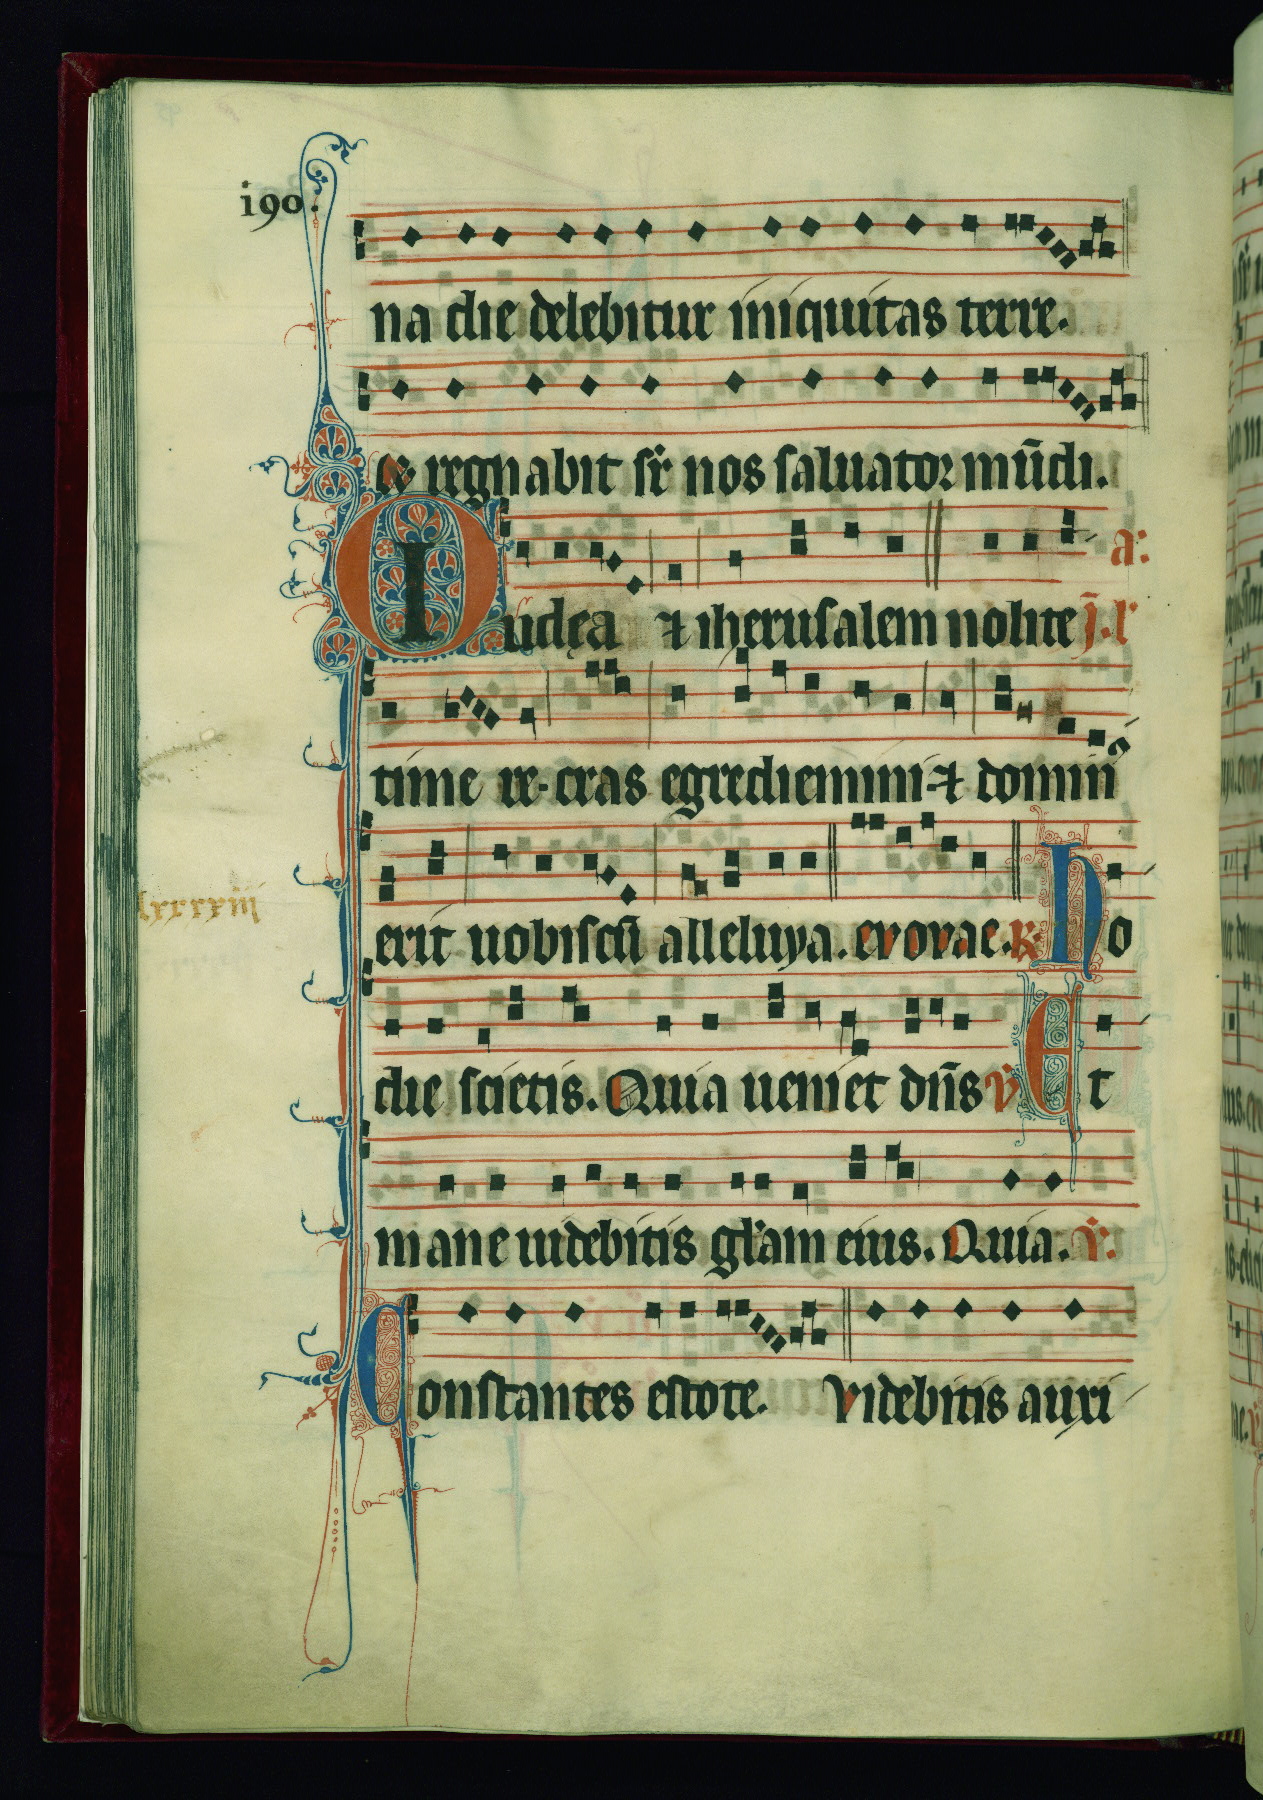 190.
na die delebitur iniquitas terre.
Et regnabit sr̄ nos saluator mūdi.
a:
Iudęa ⁊ iherusalem nolite
time re. cras egrediemini ⁊ domin̄
lxxxxiiij
erit uobiscū alleluya. evovae. ℟. Ho
die scietis. Quia ueniet dn̄s ℣ Et
mane uidebitis gl̄am eius. Quia. ℣.
Constantes estote. Videbitis auxi